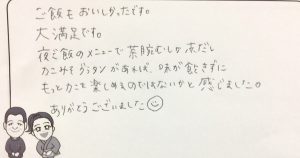 ご飯もおいしかったです。
大満足です。
夜ご飯のメニューで茶碗むしか茶だし
カニみそグラタンがあれば、味が飽きずに
もっとカニを楽しめるのではないかと感じました。
ありがとうございました